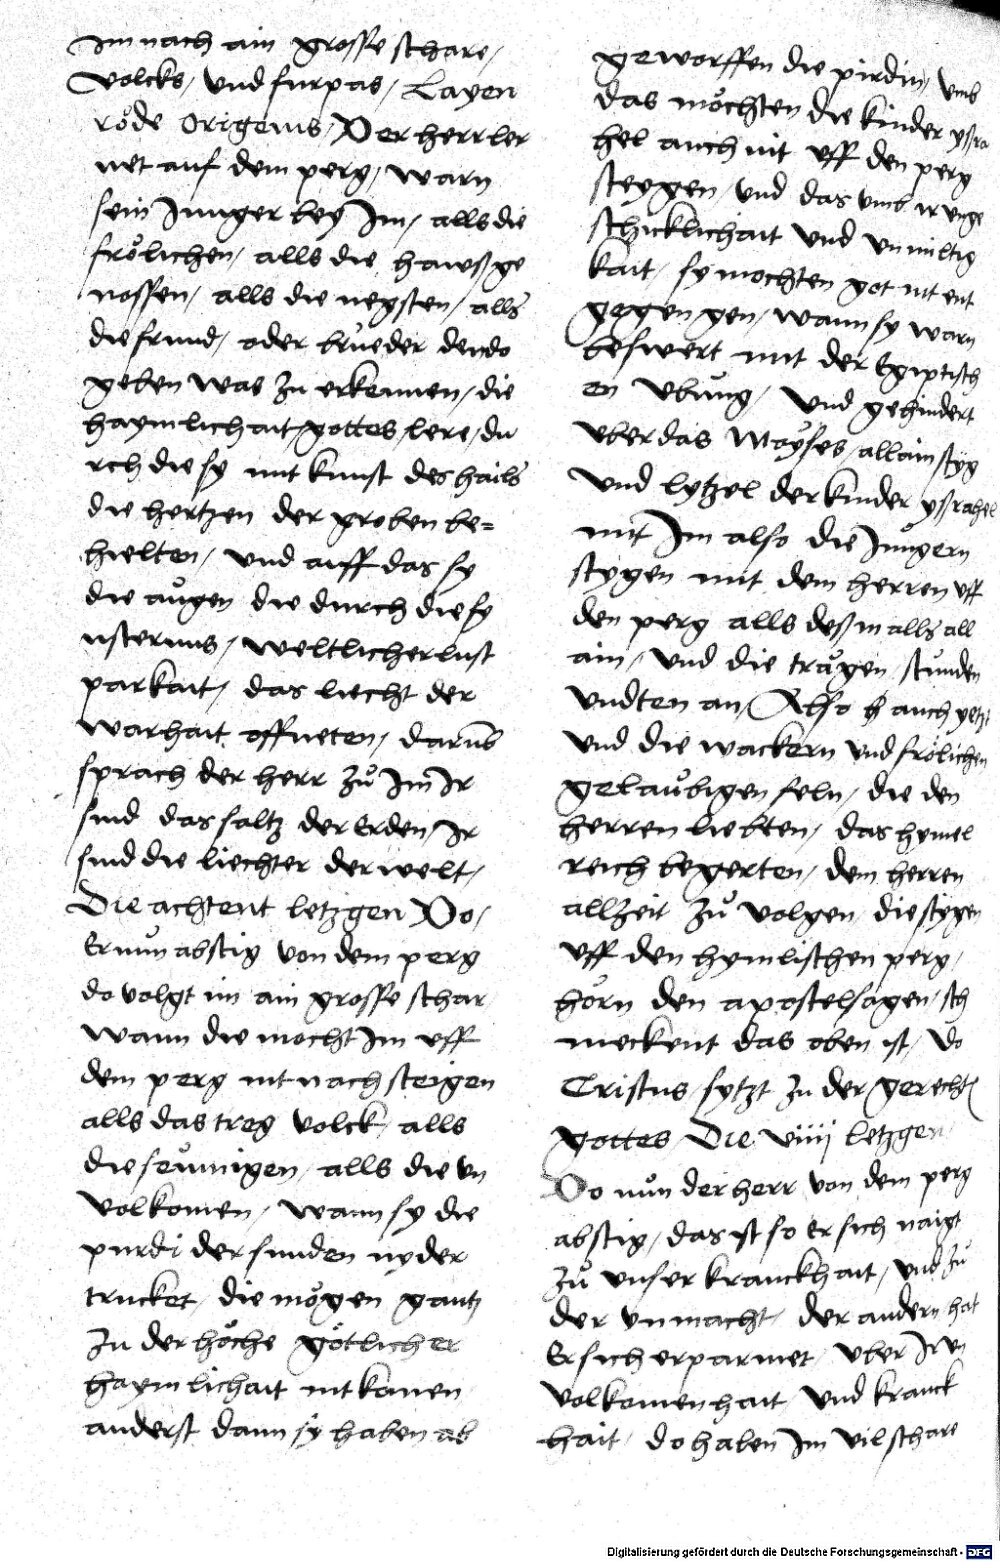 Im nach ain grosse schare /
volcks / vnd furpas / Layen
röde Origenis / Der herr ler
net auf dem perg / warn
sein Junger bey Jm / alls die
frölichen / alls die hawsge
nossen / alls die negsten / alls
die frund / oder brueder den do
geben was zu erkennen / die
haymlichait gottes / lere / du
rch die sy mit kunst des hails
die hertzen der groben be=
hielten / vnd auff das sy
die augen die durch die fy
nsternus / weltlicher lust
parkait / das liecht der
warhait offneten / darumb
sprach der herr zu Jm Ir
sind das saltz der Erden / Ir
sind die liechter der welt /
Die achtent letzgen Do /
Er nun abstig von dem perg
do volgt im ain grosse schar
wann die mocht Jm uff
dem perg nit nach steigen
alls das treg volck / alls
die seumigen / alls die vn
volkomen / wann sy die
purdi der sunden nyder
trucket / die mögen gantz
In der höche götlicher
haymlichait nit komen
anderst dann sy haben ab
geworffen die pirdin / vmb
das möchten die kinder ysra
hel auch nit uff den perg
steygen / vnd das vmb ir vnge
schicklichait vnd vnmiltig
kait / sy mochten got nit ent
gegen gen / wann sy warn
beswert mit der Egiptisch
en vbung / vnd gehindert
vber das Moyses allain styg
vnd lytzel der kinder ysrahel
mit Jm also die Jungern
stygen mit dem herren uff
den perg alls alls all
ain / vnd die trägen stunden
vndten an / Also auch yetz
vnd die wackern vnd frölichen
gelaubigen seln / die den
herren liebten / das hymel
reich begerten / dem herren
allzeit zu volgen die stygen
uff den hymlischen perg /
hörn den apostel sagen / sch
meckent das oben ist / do
Cristus / sytzt zu der gerechten
gottes Die viiij letzgen
Do nun der herr von dem perg
abstig / das ist so er sich naigt
zu vnser kranckhait / vnd zu
der vnmacht / der andern hat
Er sich erparmet / vber Ir vn
volkomenhait / vnd kranck
hait / do haben Jm vil schare
Digitalisierung gefördert durch die Deutsche Forschungsgemeinschaft - DFG